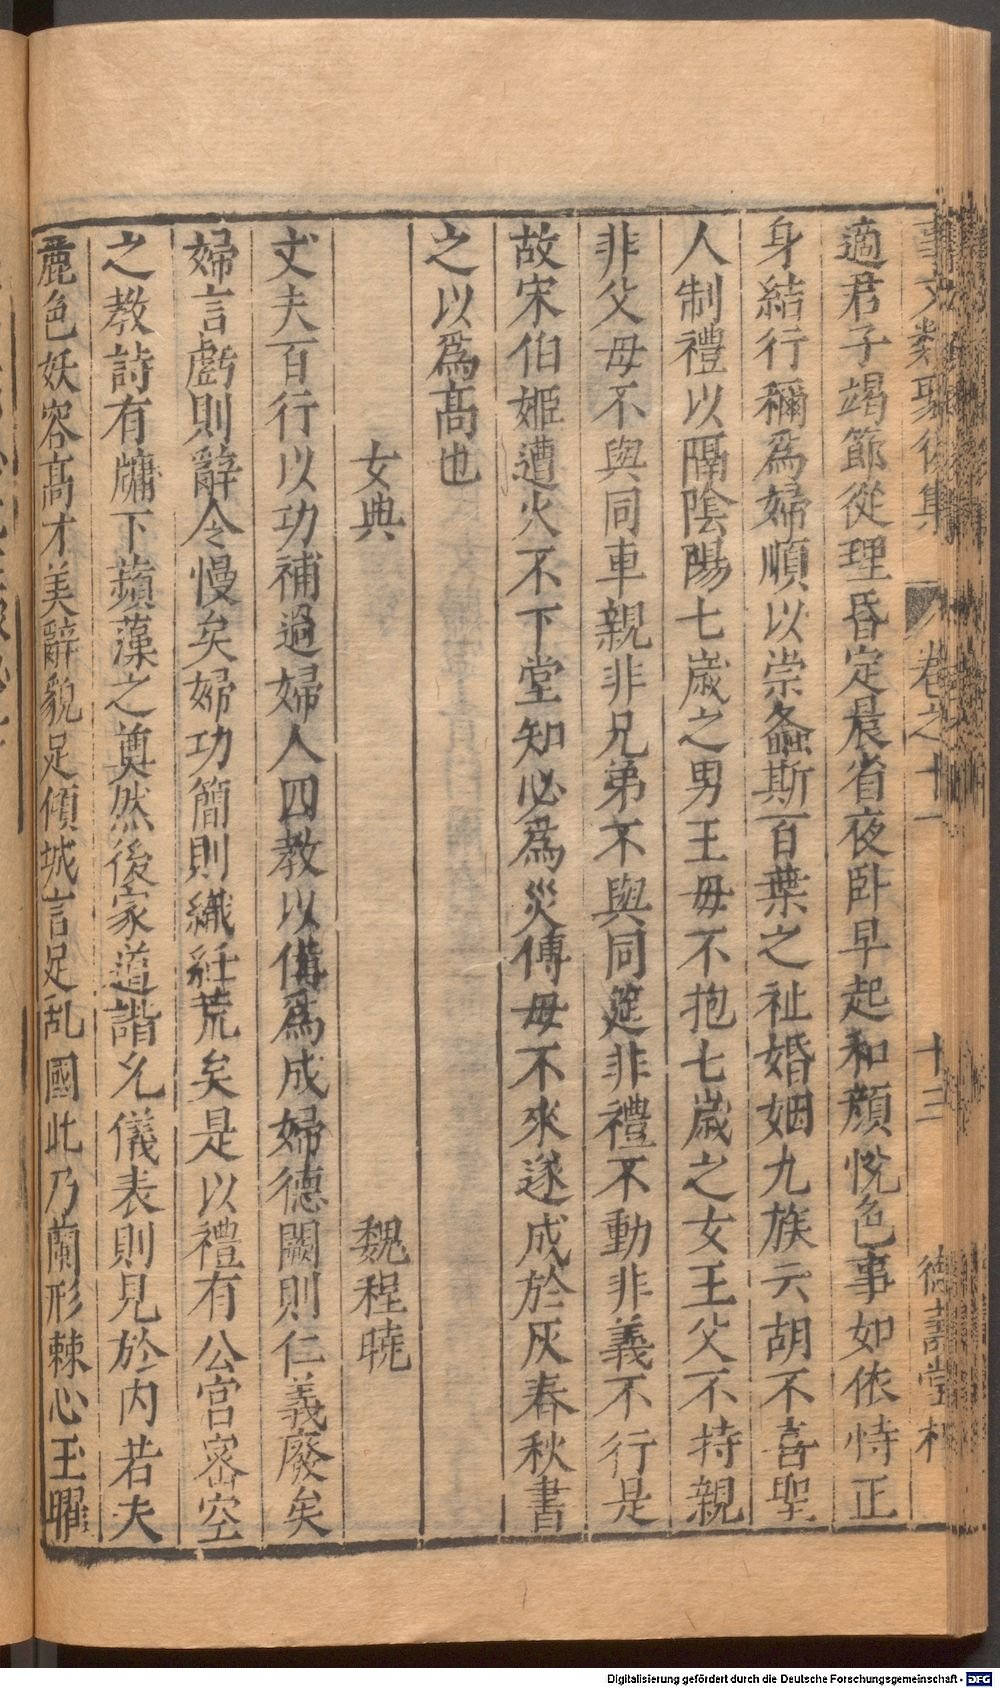 事文類聚後集 卷之十一 十三 德壽堂梓
適君子竭節從理昏定晨省夜卧早起和顔恱色事如依恃正
身結行稱爲婦順以崇螽斯百葉之祉婚姻九族云胡不喜聖
人制禮以隔陰陽七歲之男王母不抱七歲之女王父不持親
非父母不與同車親非兄弟不與同筵非禮不動非義不行是
故宋伯姬遭火不下堂知必爲災傅母不來遂成於灰春秋書
之以爲髙也
女典 魏程曉
丈夫百行以功補過婦人四教以備爲成婦德闕則仁義廢矣
婦言虧則辭令慢矣婦功簡則織紝荒矣是以禮有公宮宻空
之教詩有牖下蘋藻之奠然後家道諧允儀表則見於内若夫
麗色妖容髙才美辭貌足傾城言足乱國此乃蘭形棘心玉曜
Digitalisierung gefördert durch die Deutsche Forschungsgemeinschaft - DFG